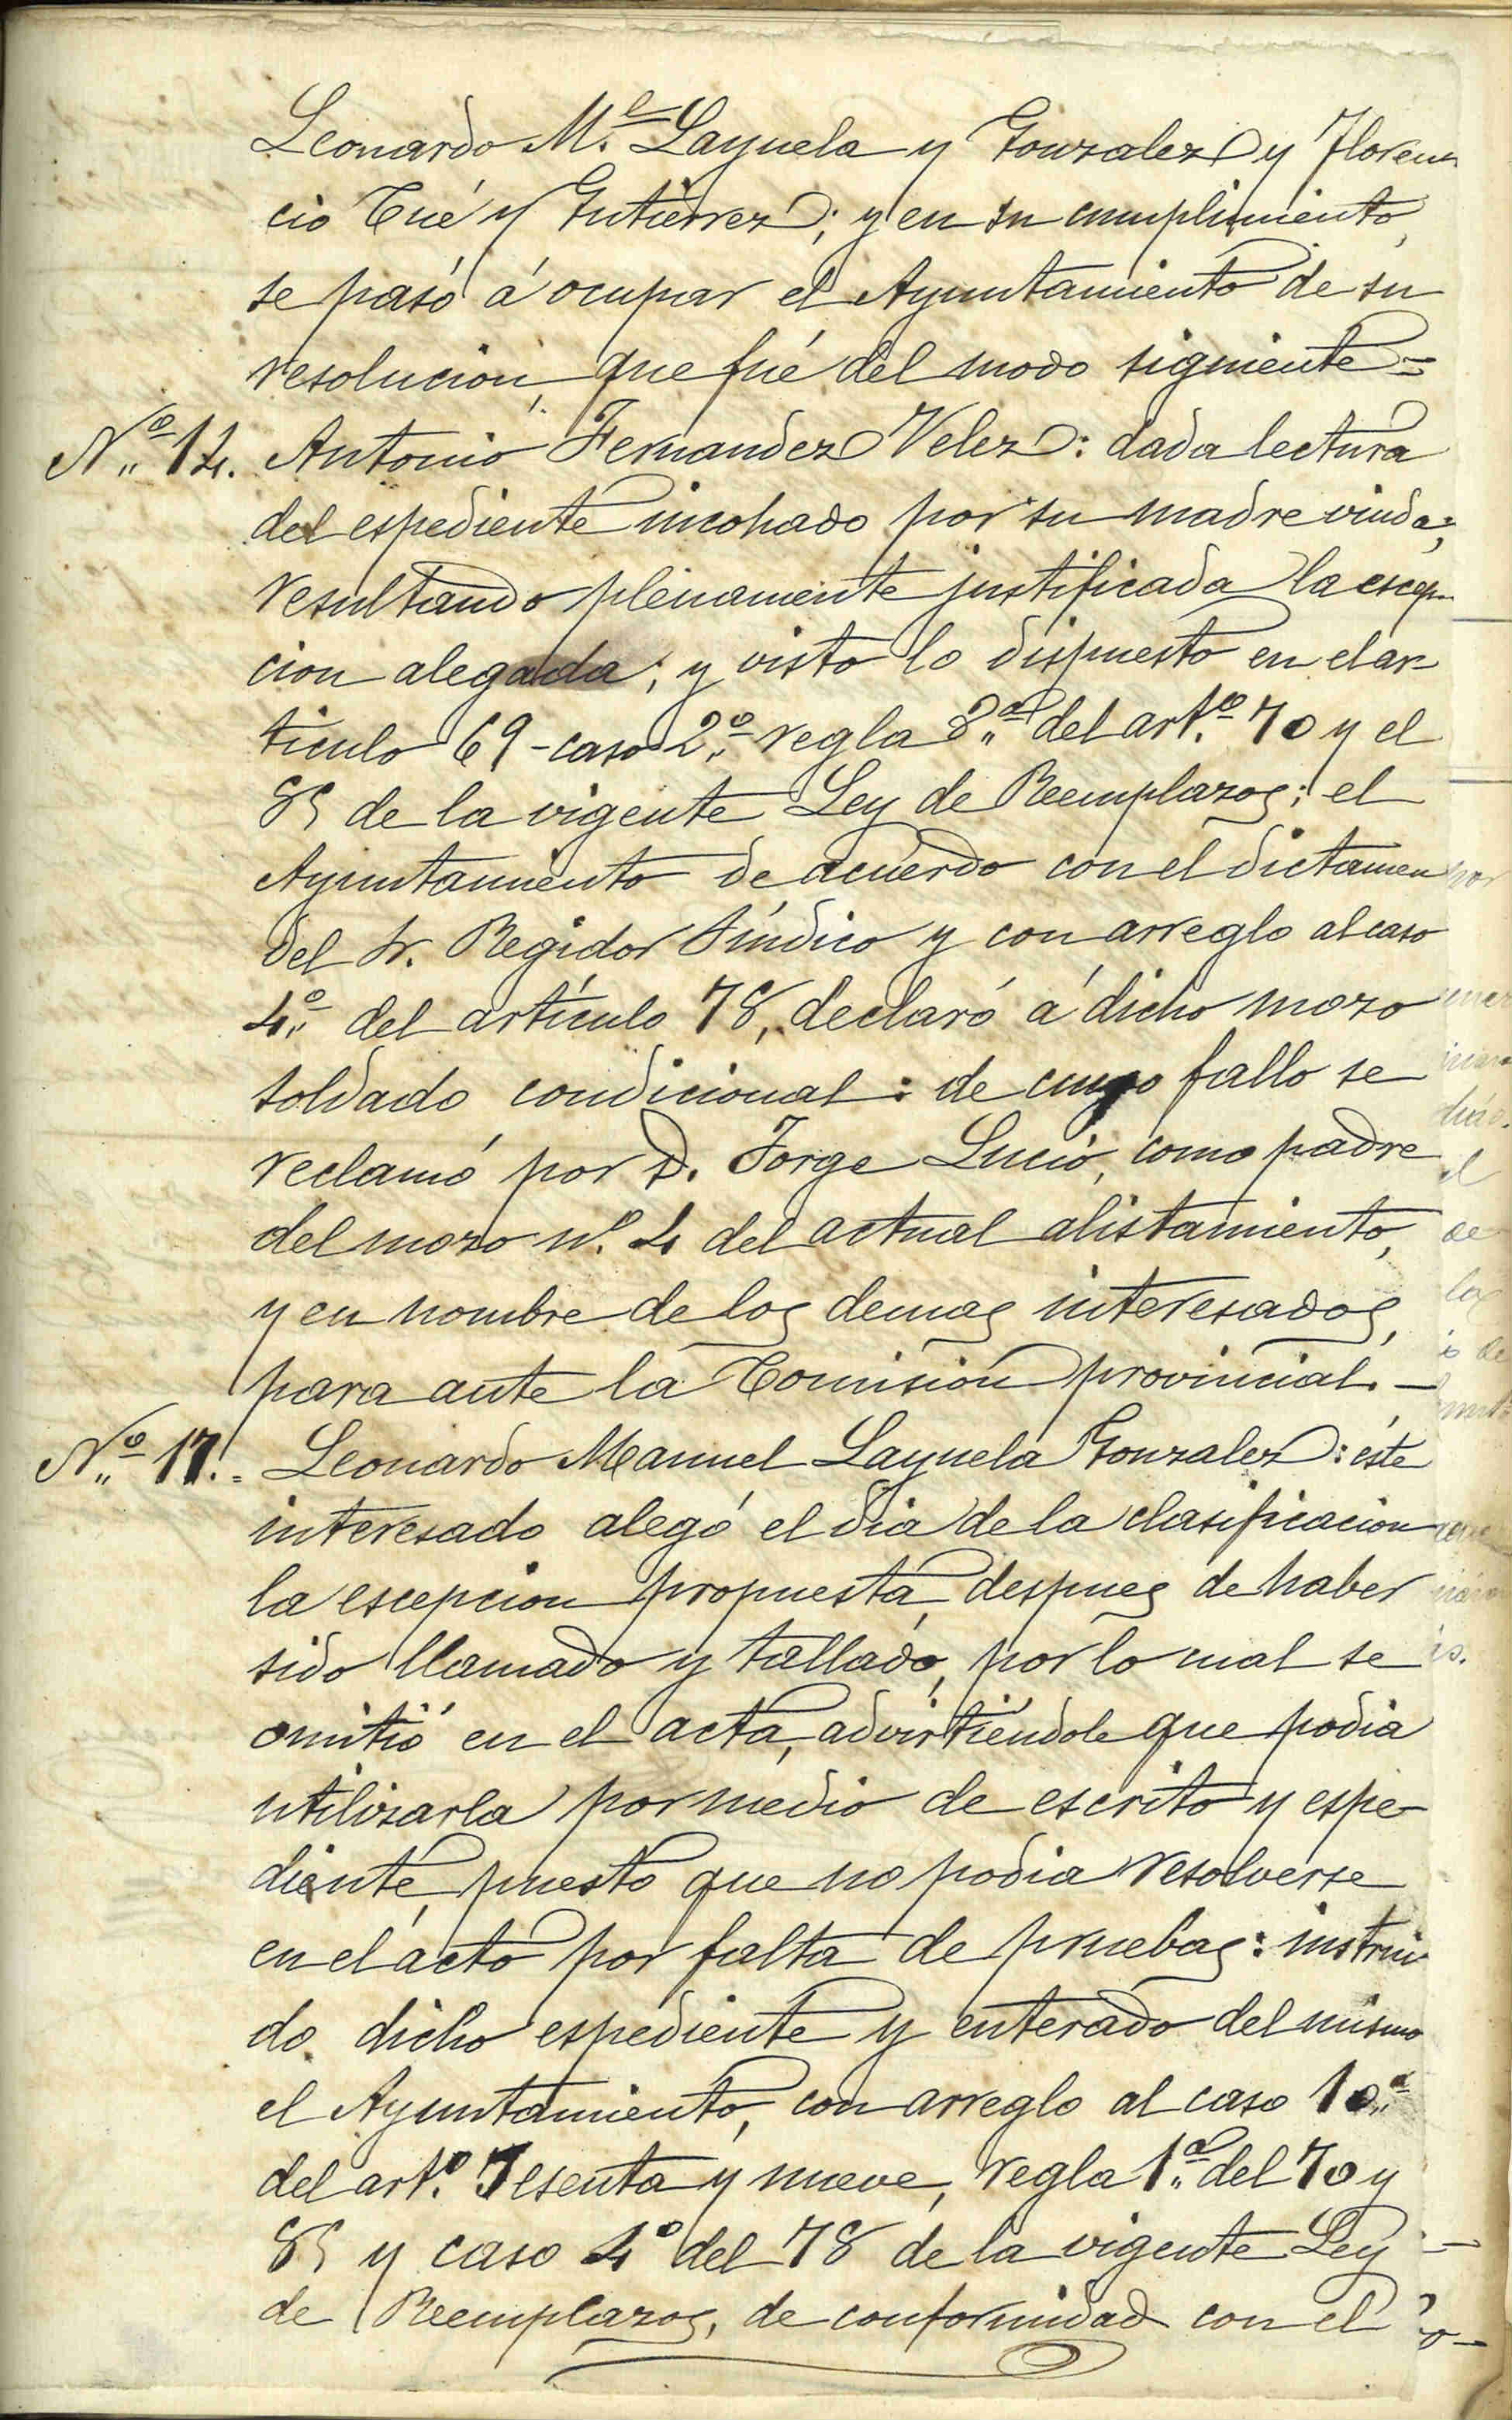 Leonardo M.l Layuela y Gonzalez y Floren
cio Cué y Gutierrez; y en su cumplimiento,
se pasó á ocupar el Ayuntamiento de su
resolucion, que fué del modo siguiente=
N.º 14. Antonio Fernandez Velez: dada lectura
del espediente incohado por su madre viuda;
resultando plenamente justificada la escep-
cion alegada; y visto lo dispuesto en el ar-
ticulo 69 - caso 2.º regla 8.ª del art.º 70 y el
85 de la vigente Ley de Reemplazos; el
Ayuntamiento de acuerdo con el dictamen
del Sr. Regidor Síndico y con arreglo al caso
4.º del artículo 78, declaró á dicho mozo
soldado condicional: de cuyo fallo se
reclamó por D. Jorge Lucio, como padre
del mozo n.º 4 del actual alistamiento,
y en nombre de los demas interesados,
para ante la Comision provincial. -
N.º 17. Leonardo Manuel Layuela Gonzalez: éste
interesado alegó el dia de la clasificacion
la escepcion propuesta, despues de haber
sido llamado y tallado, por lo cual se
omitió en el acta, advirtiéndole que podia
utilizarla por medio de escrito y espe-
diente, puesto que no podia resolverse
en el acto por falta de pruebas: instrui
do dicho espediente y enterado del mismo
el Ayuntamiento, con arreglo al caso 10.º
del art.º sesenta y nueve, regla 1.ª del 70 y
85 y caso 4º del 78 de la vigente Ley
de Reemplazos, de conformidad con el